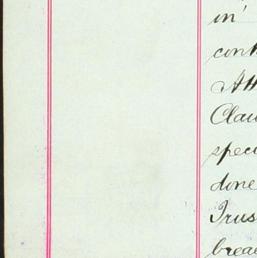 in
cont
Att
Clau
speci
done
Trus
breac